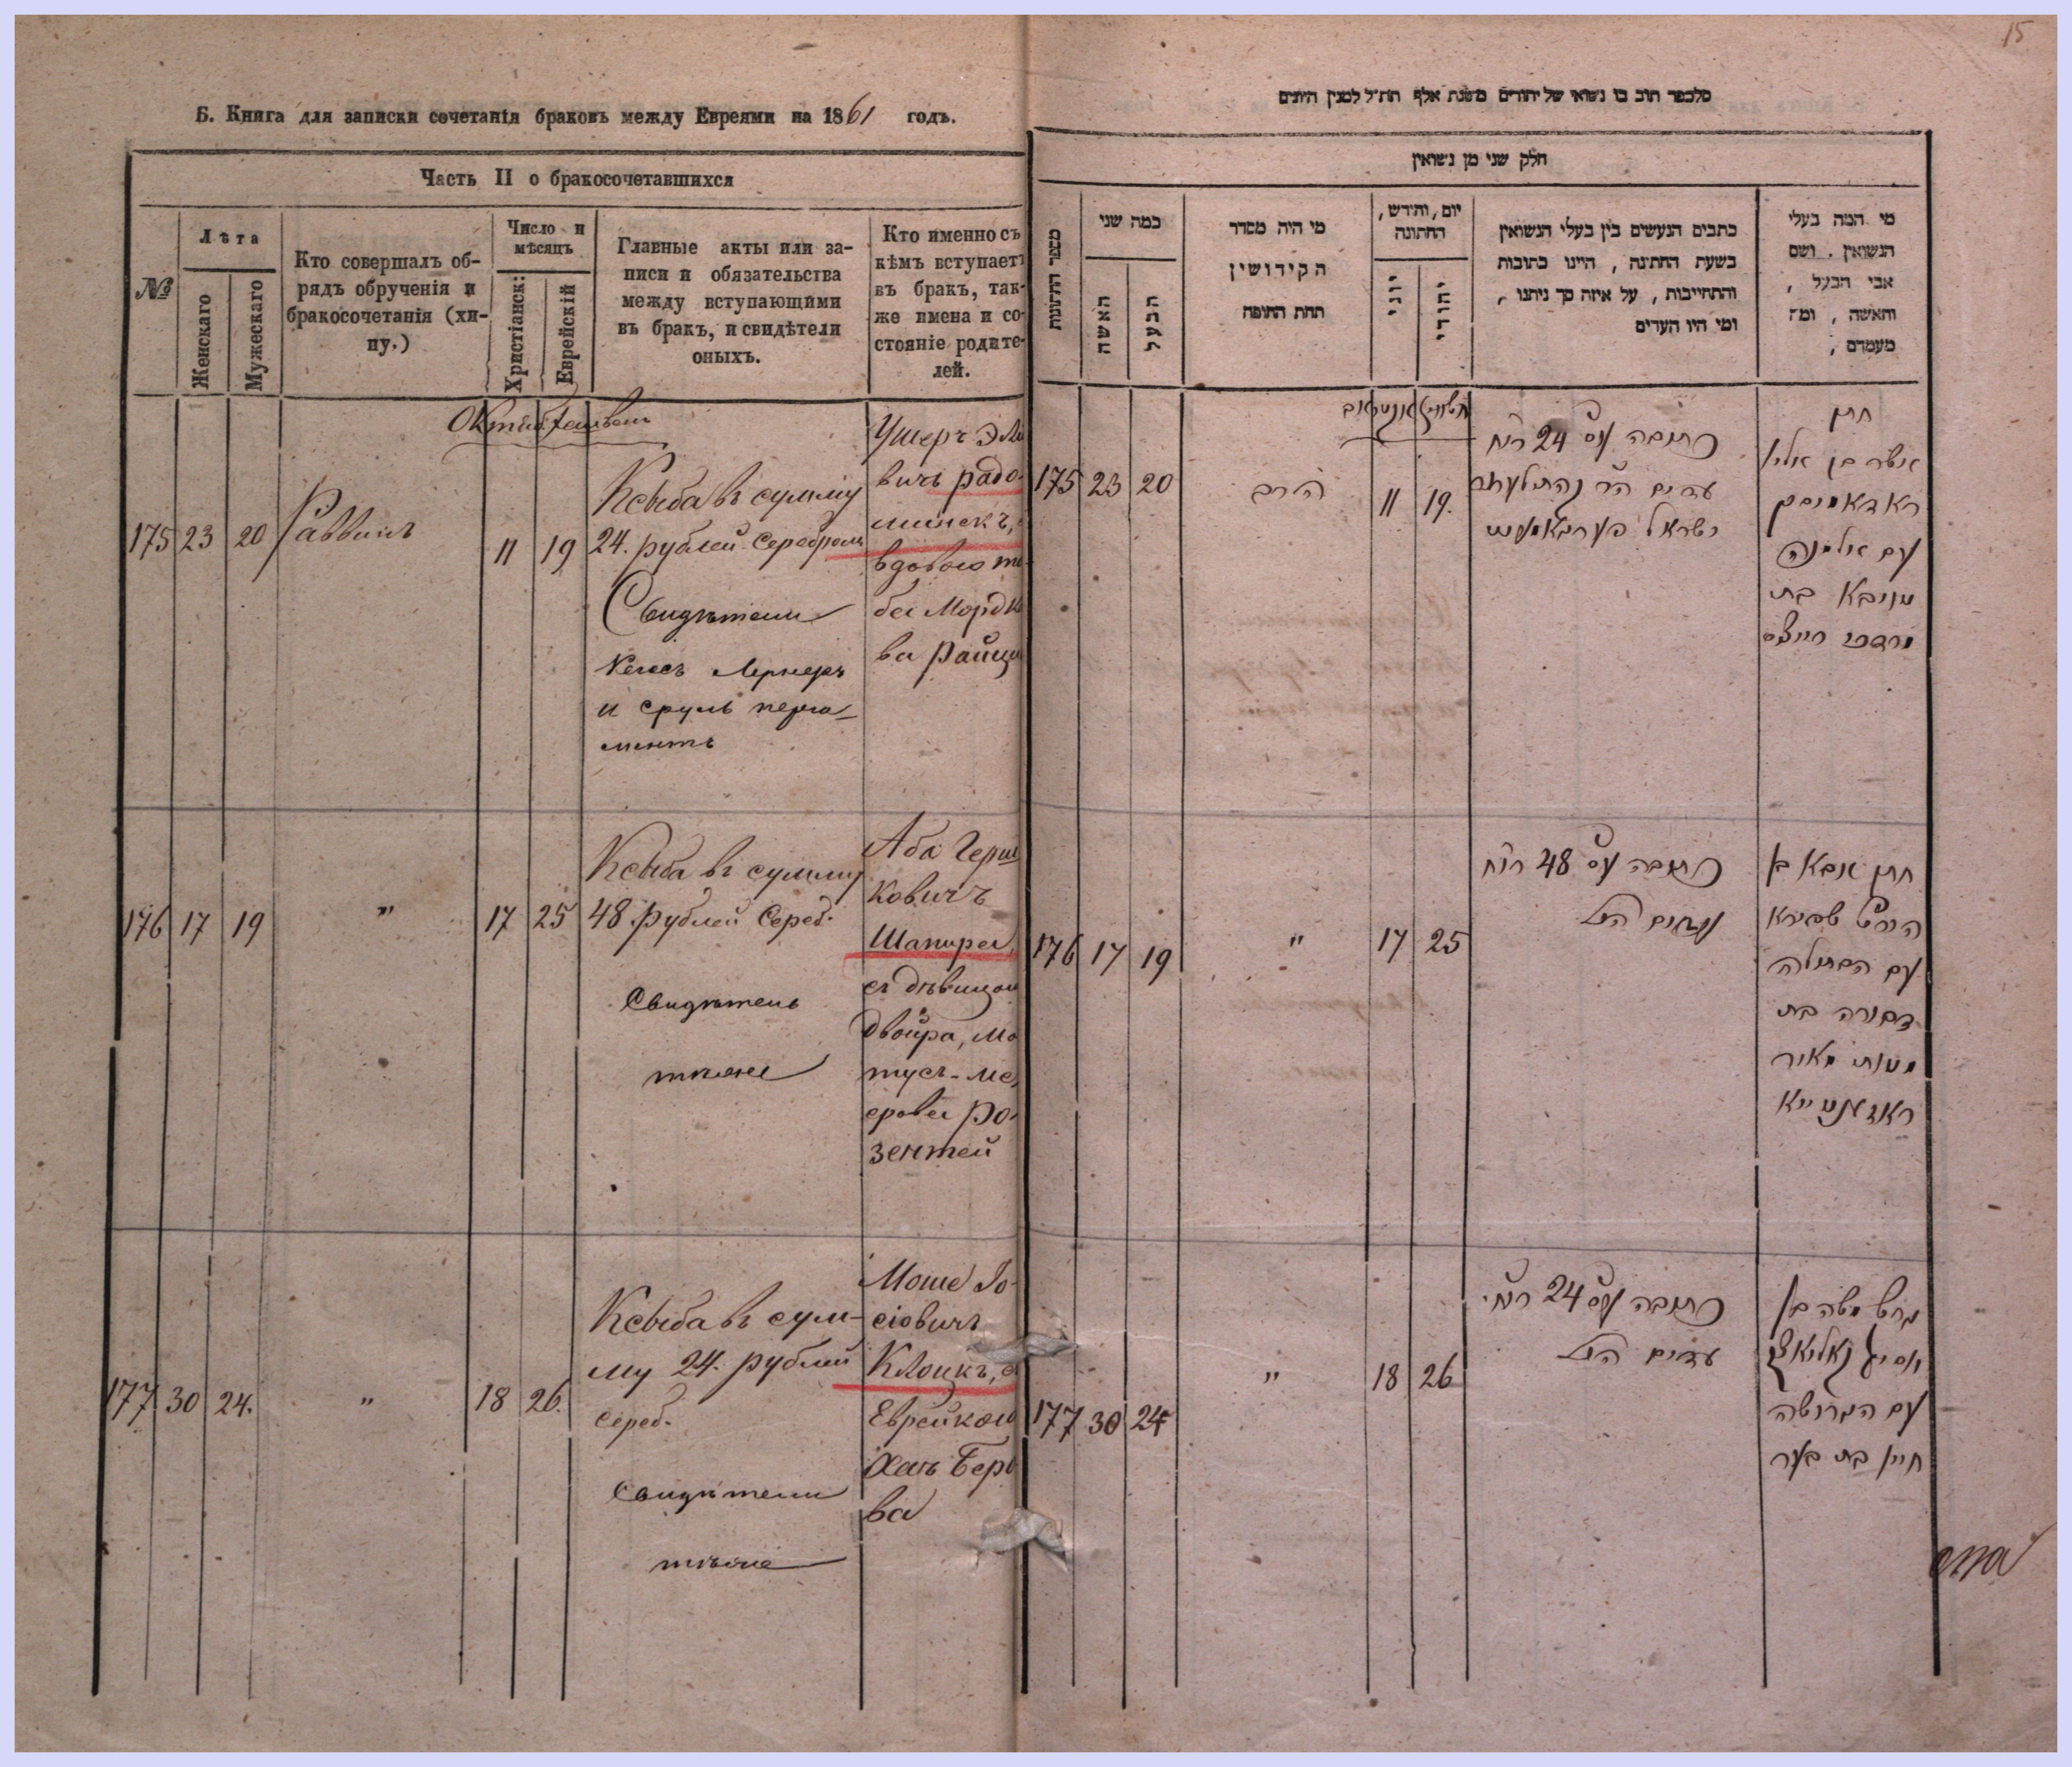 15
Б. Книга для записки сочетанія браковъ между Евреями на 1861 годъ.
Часть II о бракосочетавшихся
№
Лѣта
Женскаго
Мужескаго
Кто совершалъ об-
рядъ обрученія и
бракосочетанія (хи-
пу.)
Число и
мѣсяцъ
Христіанск:
Еврейскій
Главные акты или за-
писи и обязательства
между вступающими
въ бракъ, и свидѣтели
оныхъ.
Кто именно съ
кѣмъ вступаетъ
въ бракъ, так-
же имена и со-
стояніе родите-
лей.
175 23 20 Раввинъ 11 19
Ксыба въ сумму
24. рублей Серебромъ
Свидѣтели
Лернеръ
и сруль перга-
ментъ
Ушеръ Эл
вичъ радо-
мисскъ,
вдовою
ба Морд
ва Райц
176 17 19 " 17 25
Ксыба въ сумму
48. рублей Сереб.
Свидѣтель
тѣже
Аба Герш
ковичъ
Шапира,
съ дѣвицою
двойра, Мо
тусъ-Ме
ерова Ро-
зентей
177 30 24. " 18 26.
Ксыба въ сум-
му 24. рублей
сереб.
Свидѣтели
тѣже
Моше Іо-
сіовичъ
Клоцкъ,
Еврейкою
Хаъ Бер
ва
חלק שני מן נשואין
מספר החתונות
כמה שני
האשה
הבעל
מי היה מסדר
הקידושין
תחת החופה
יום, וחדש,
החתונה
יוני
יהודי
כתבים הנעשים בין בעלי הנשואין
בשעת החתונה, היינו כתובות
והתחייבות, על איזה סך ניתנו,
ומי היו העדים
מי המה בעלי
הנשואין. ושם
אבי הבעל,
והאשה, ומה
מעמדם,
175 23 20 הרב 11 19.
כתובה עס 24 רוח
ישראל פערגאמענט
חתן
אשר בן אליו
ראדאמיסק
עם אלמנה
טויבא בת
מרדכי רייצס
176 17 19 " 17 25
כתובה עס 48 רוח
עדים הנל
חתן אבא בן
הירש שפירא
עם הבתולה
דבורה בת
מטות מאיר
177 30 24 " 18 26
כתובה עס 24 רוח.
עדים הנל
גרוש משה בן
עם הגרושה
חיין בת בער